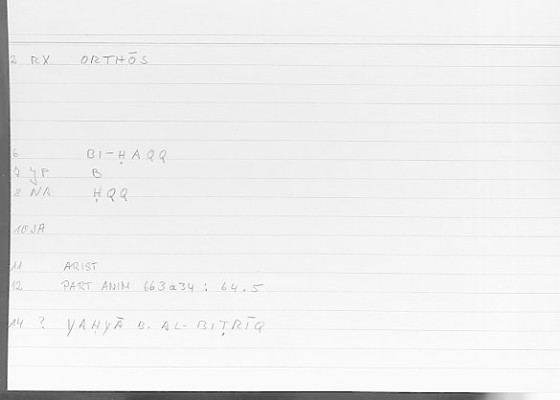 2 RX ORTHŌS
6 BI-ḤAQQ
B
8 NA ḤQQ
10 JA
11 ARIST
12 PART ANIM 663a34 : 64.5
14 ? YAḤYĀ B. AL-BIṬRĪQ